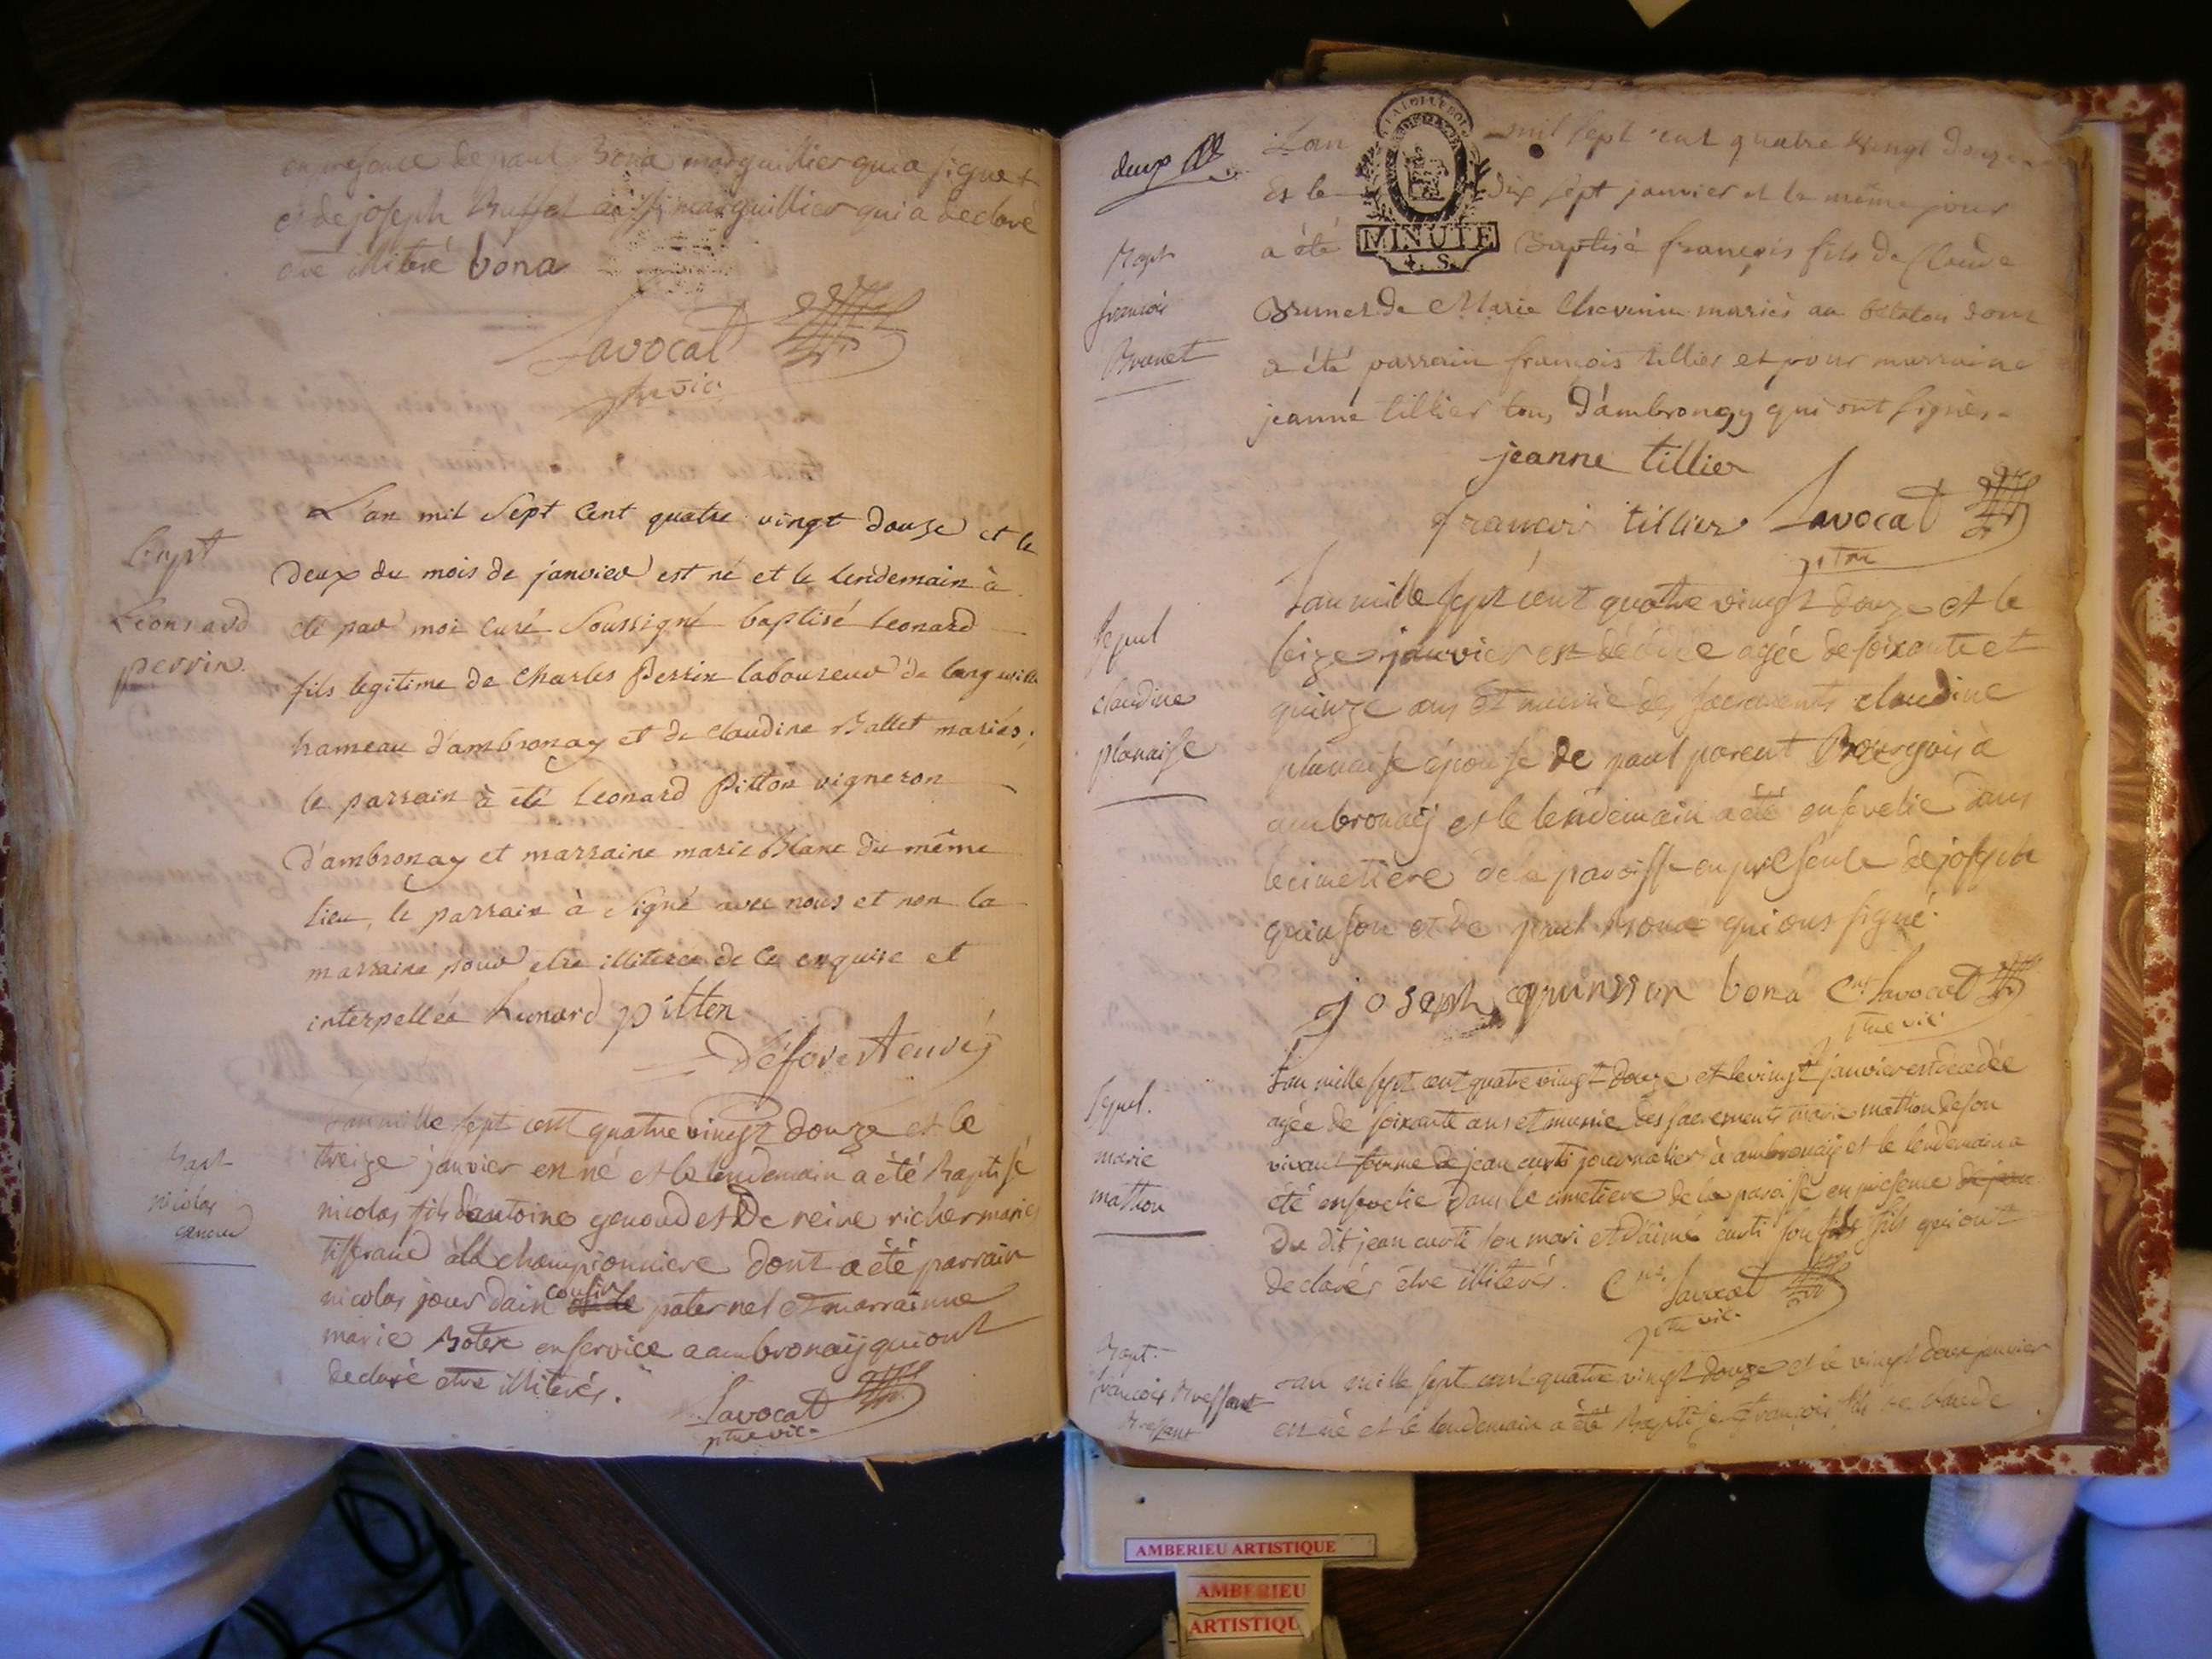 en presence de paul Bona marguillier qui a signe +
et de joseph Buffet aussi marguillier qui a declaré
etre illiteré bona
Lavocat
ptre vic.
Bapt
Leonard
perrin.
L'an mil Sept Cent quatre vingt douse et le
deux du mois de janvier est né et le lendemain à
eté par moi Curé Soussigné baptisé Leonard
fils legitime de Charles Perrin laboureur de
hameau d'ambronay et de Claudine Ballet mariés;
le parrain à été Leonard Pitton vigneron
d'ambronay et marraine marie Blanc du même
lieu, le parrain à signé avec nous et non la
marraine pour etre illiterée de ce enquise et
interpellée Leonard pitton
Bapt
nicolas
genoud
L'an mille sept cent quatre vingt douze et le
treize janvier en né et le lendemain a été Baptisé
nicolas fils d'antoine genoud et de reine richer mariés
tisserand à la championniere dont a été parrain
nicolas jourdain cousin paternel et marrainne
marie Botex en service a ambronaij qui ont
declaré etre illiterés.
Lavocat
ptre vic.
deux
L'an mil sept cent quatre vingt douze
et le dix sept janvier et le même jour
MINUTE
4. S.
a été Baptisé françois fils de Claude
Brunet de Marie Chevinin mariés au dont
a été parrain françois tillier et pour marraine
jeanne tillier tous d'ambronay qui ont signés.
Bapt
francois
Brunet
jeanne tillier
francois tillier Lavocat
ptre
Sepul
claudine
planaise
L'an mille sept cent quatre vingt douze et le
seize janvier est décédée agée de soixante et
quinze ans et munie des sacrements claudine
planaise épouse de paul parent Bourgois à
ambronaij et le lendemain a été ensevelie dans
le cimetière de la paroisse en presence de joseph
quinson et de paul Bona qui ont signé.
joseph quinsson bona Cne Lavocat
ptre vic.
Sepul.
marie
mathon
L'an mille sept cent quatre vingt douze et le vingt janvier est decedée
agée de soixante ans et munie des sacrements marie mathon de son
vivant femme de jean curti journalier à ambronaij et le lendemain a
été ensevelie dans le cimetiere de la paroisse en presence de jean
du dit jean curti son mari et d'aimé curti son fils qui ont
declarés être illiterés. Cne. Lavocat
ptre vic.
Bapt.
francois Bressant
Bressant
L'an mille sept cent quatre vingt douze et le vingt deux janvier
en né et le lendemain a été Baptisé françois fils de claude
AMBERIEU ARTISTIQUE
AMBERIEU
ARTISTIQU